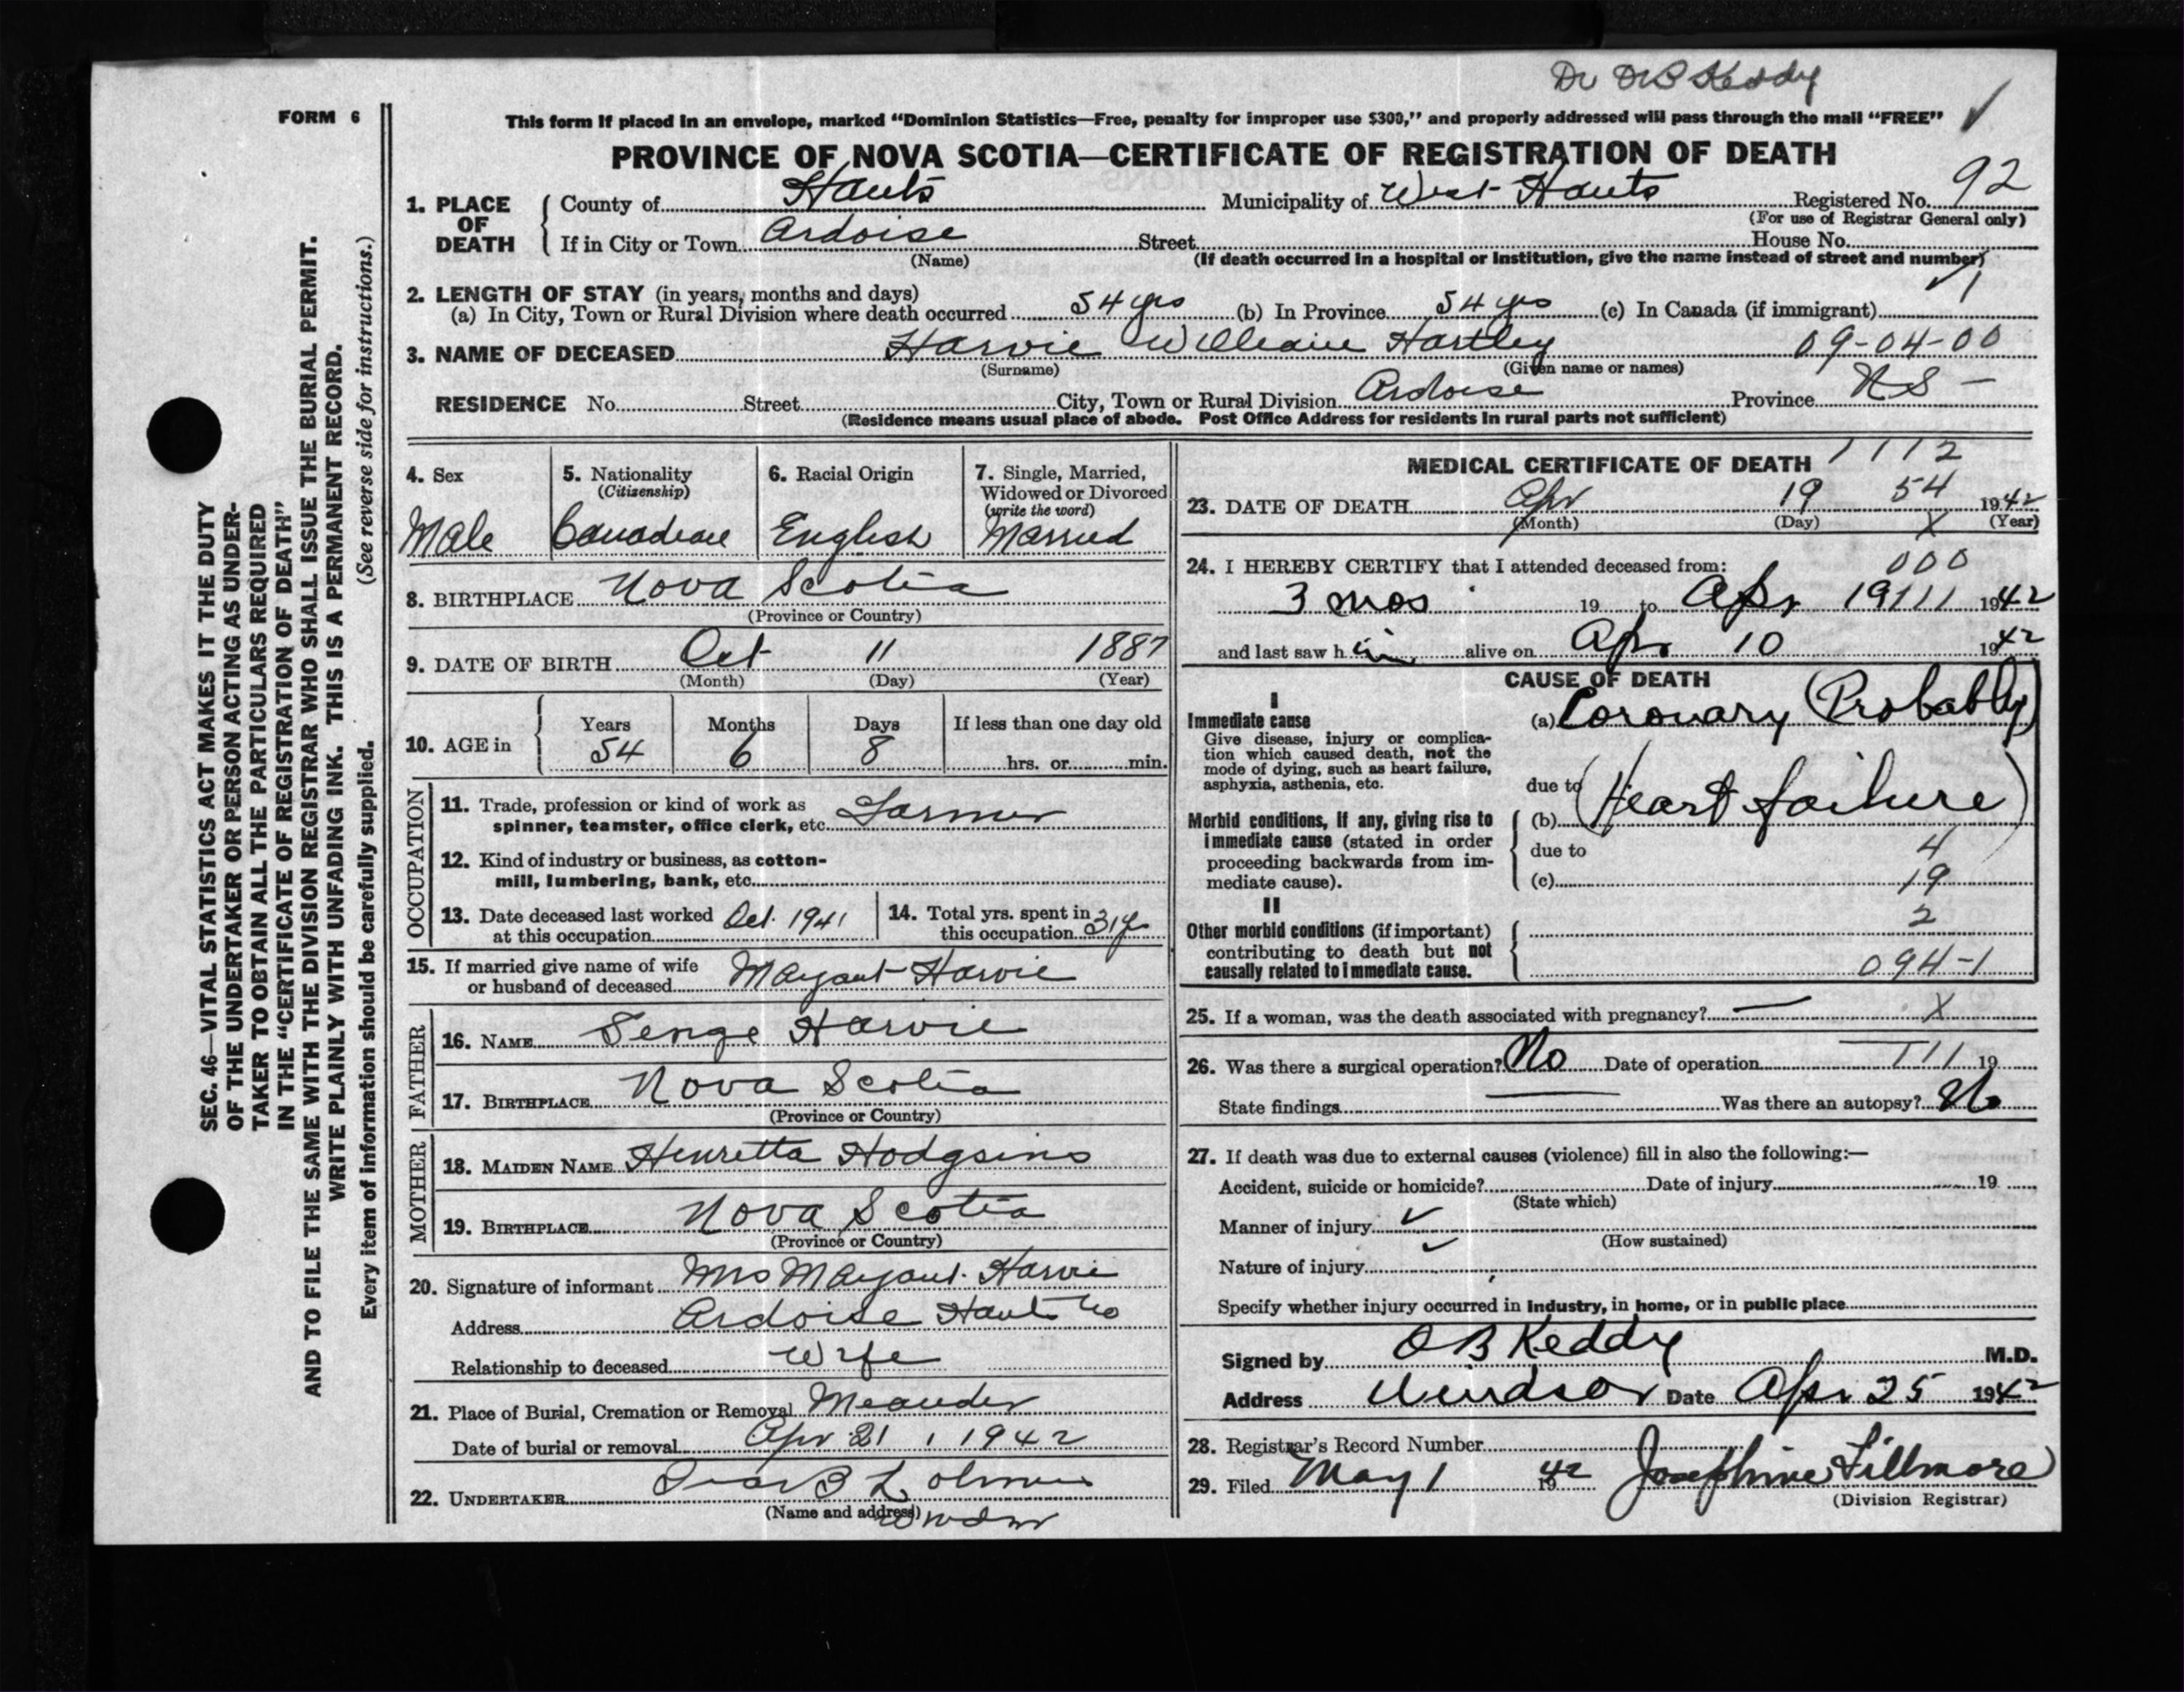 Dr OB Keddy
FORM 6
This form if placed in an envelope, marked "Dominion Statistics—Free, penalty for improper use $300," and properly addressed will pass through the mail "FREE"
PROVINCE OF NOVA SCOTIA—CERTIFICATE OF REGISTRATION OF DEATH
1. PLACE OF DEATH
County of Hants Municipality of West Hants Registered No. 92
(For use of Registrar General only)
If in City or Town Ardoise Street House No.
(Name) (If death occurred in a hospital or institution, give the name instead of street and number)
2. LENGTH OF STAY (in years, months and days)
(a) In City, Town or Rural Division where death occurred 54 yrs (b) In Province 54 yrs (c) In Canada (if immigrant)
3. NAME OF DECEASED Harvie William Hartley 09-04-00
(Surname) (Given name or names)
RESIDENCE No. Street City, Town or Rural Division Ardoise Province NS -
(Residence means usual place of abode. Post Office Address for residents in rural parts not sufficient)
4. Sex 5. Nationality (Citizenship) 6. Racial Origin 7. Single, Married, Widowed or Divorced (write the word)
Male Canadian English Married
8. BIRTHPLACE Nova Scotia
(Province or Country)
9. DATE OF BIRTH Oct 11 1887
(Month) (Day) (Year)
10. AGE in Years Months Days If less than one day old
54 6 8 hrs. or min.
OCCUPATION
11. Trade, profession or kind of work as
spinner, teamster, office clerk, etc. Farmer
12. Kind of industry or business, as cotton-
mill, lumbering, bank, etc.
13. Date deceased last worked at this occupation Oct. 1941
14. Total yrs. spent in this occupation 31 y
15. If married give name of wife
or husband of deceased Margaret Harvie
FATHER
16. NAME Harvie
17. BIRTHPLACE Nova Scotia
(Province or Country)
MOTHER
18. MAIDEN NAME Henretta Hodgsins
19. BIRTHPLACE Nova Scotia
(Province or Country)
20. Signature of informant Mrs Margaret Harvie
Address Ardoise Hants Co
Relationship to deceased Wife
21. Place of Burial, Cremation or Removal Meander
Date of burial or removal Apr 21, 1942
22. UNDERTAKER
(Name and address) Windsor
MEDICAL CERTIFICATE OF DEATH 1112
23. DATE OF DEATH Apr 19 54 1942
(Month) (Day) X (Year)
24. I HEREBY CERTIFY that I attended deceased from: 000
3 mos 19 to Apr 19 111 1942
and last saw h im alive on Apr 10 1942
CAUSE OF DEATH
I
Immediate cause
Give disease, injury or complica-
tion which caused death, not the
mode of dying, such as heart failure,
asphyxia, asthenia, etc.
(a) Coronary (Probably)
due to
(b) (Heart failure)
Morbid conditions, if any, giving rise to
immediate cause (stated in order
proceeding backwards from im-
mediate cause).
due to 4
(c) 19
II
Other morbid conditions (if important)
contributing to death but not
causally related to immediate cause.
2
094-1
25. If a woman, was the death associated with pregnancy? — X
26. Was there a surgical operation? No Date of operation 111 19
State findings — Was there an autopsy? No
27. If death was due to external causes (violence) fill in also the following:—
Accident, suicide or homicide? Date of injury 19
(State which)
Manner of injury
(How sustained)
Nature of injury
Specify whether injury occurred in industry, in home, or in public place
Signed by OB Keddy M.D.
Address Windsor Date Apr 25 1942
28. Registrar's Record Number
29. Filed May 1 1942 Josephine Fillmore
(Division Registrar)
SEC. 46—VITAL STATISTICS ACT MAKES IT THE DUTY
OF THE UNDERTAKER OR PERSON ACTING AS UNDER-
TAKER TO OBTAIN ALL THE PARTICULARS REQUIRED
IN THE "CERTIFICATE OF REGISTRATION OF DEATH"
AND TO FILE THE SAME WITH THE DIVISION REGISTRAR WHO SHALL ISSUE THE BURIAL PERMIT.
WRITE PLAINLY WITH UNFADING INK. THIS IS A PERMANENT RECORD.
Every item of information should be carefully supplied. (See reverse side for instructions.)